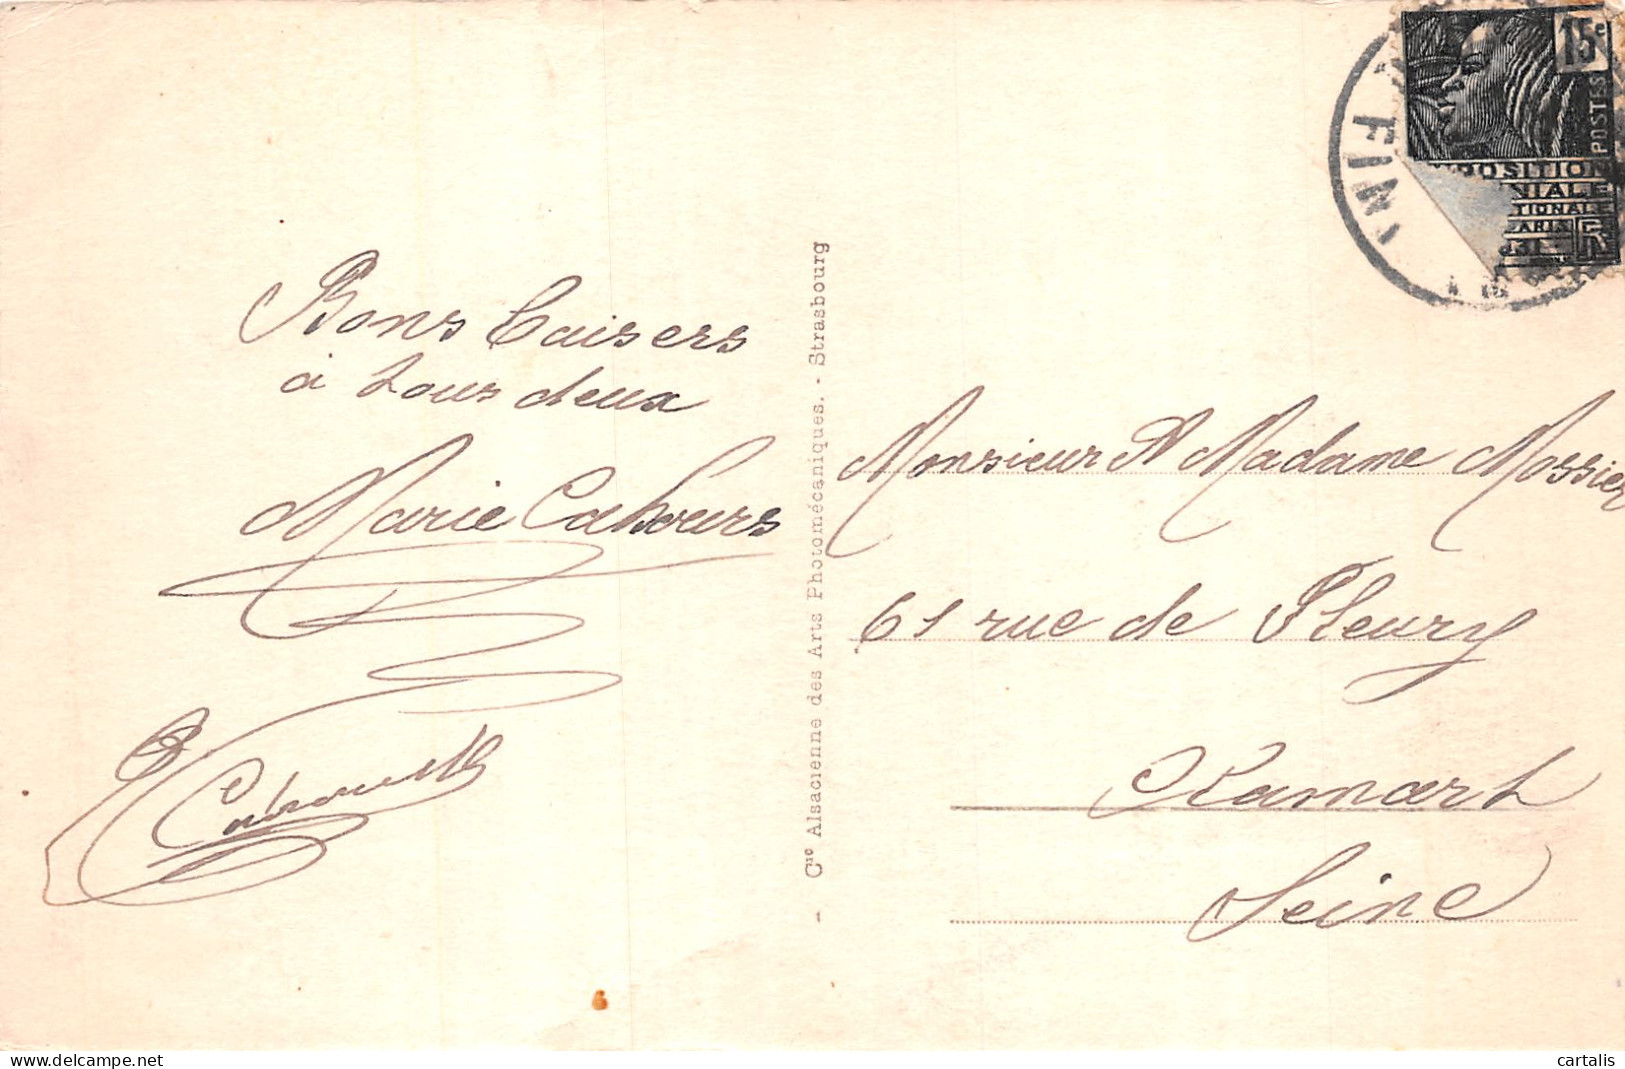 Bons baisers
à tous deux
Marie Cahours
Cahours
- Cie Alsacienne des Arts Photomécaniques. - Strasbourg
15c
POSTES
POSITION
NIALE
TIONALE
PARIS
R
FIN
Monsieur & Madame Mossier
61 rue de Fleury
Clamart
Seine
www.delcampe.net
cartalis